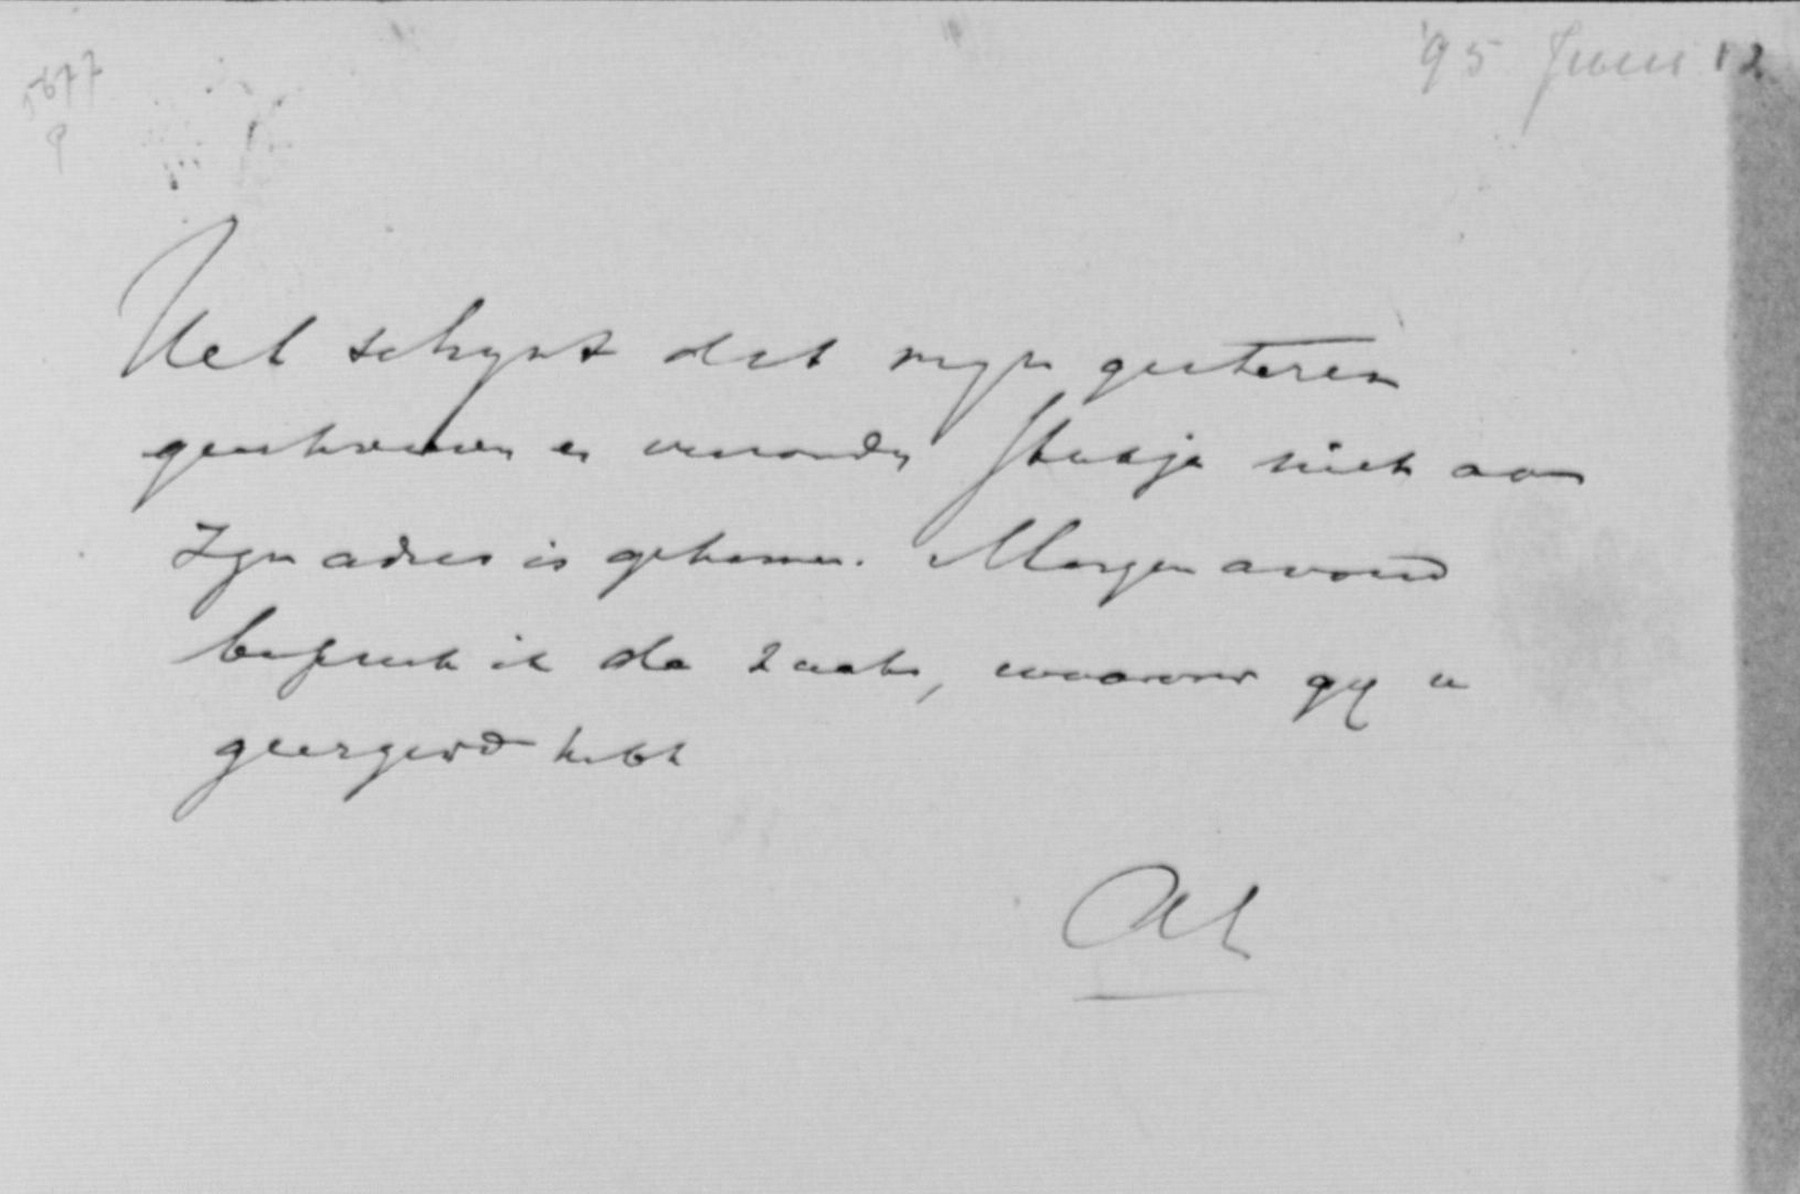 5677
9
'95 Juni 12
Het schynt dat myn gisteren
geschreven en verzonden stukje niet aan
zyn adres is gekomen. Morgen avond
bespreek ik de zaak, waarover gy u
geergerd hebt